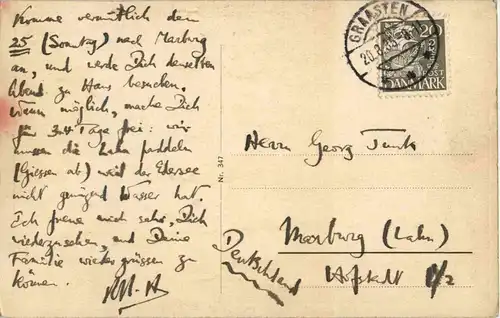 Komme vermutlich den
25 (Sonntag) nach Marburg
an, und werde Dich denselben
Abend zu Haus besuchen.
Wenn möglich, mache Dich
für 3-4 Tage frei: wir
müssen die Lahn paddeln
(Giessen ab) weil der Edersee
nicht genügend Wasser hat.
Ich freue mich sehr, Dich
wiederzusehen, und Deine
Familie wieder grüssen zu
können.
Nr. 347
GRAASTEN
20
POST
DANMARK
Herrn Georg
Marburg (Lahn)
Hofstadt 1/2
Deutschland